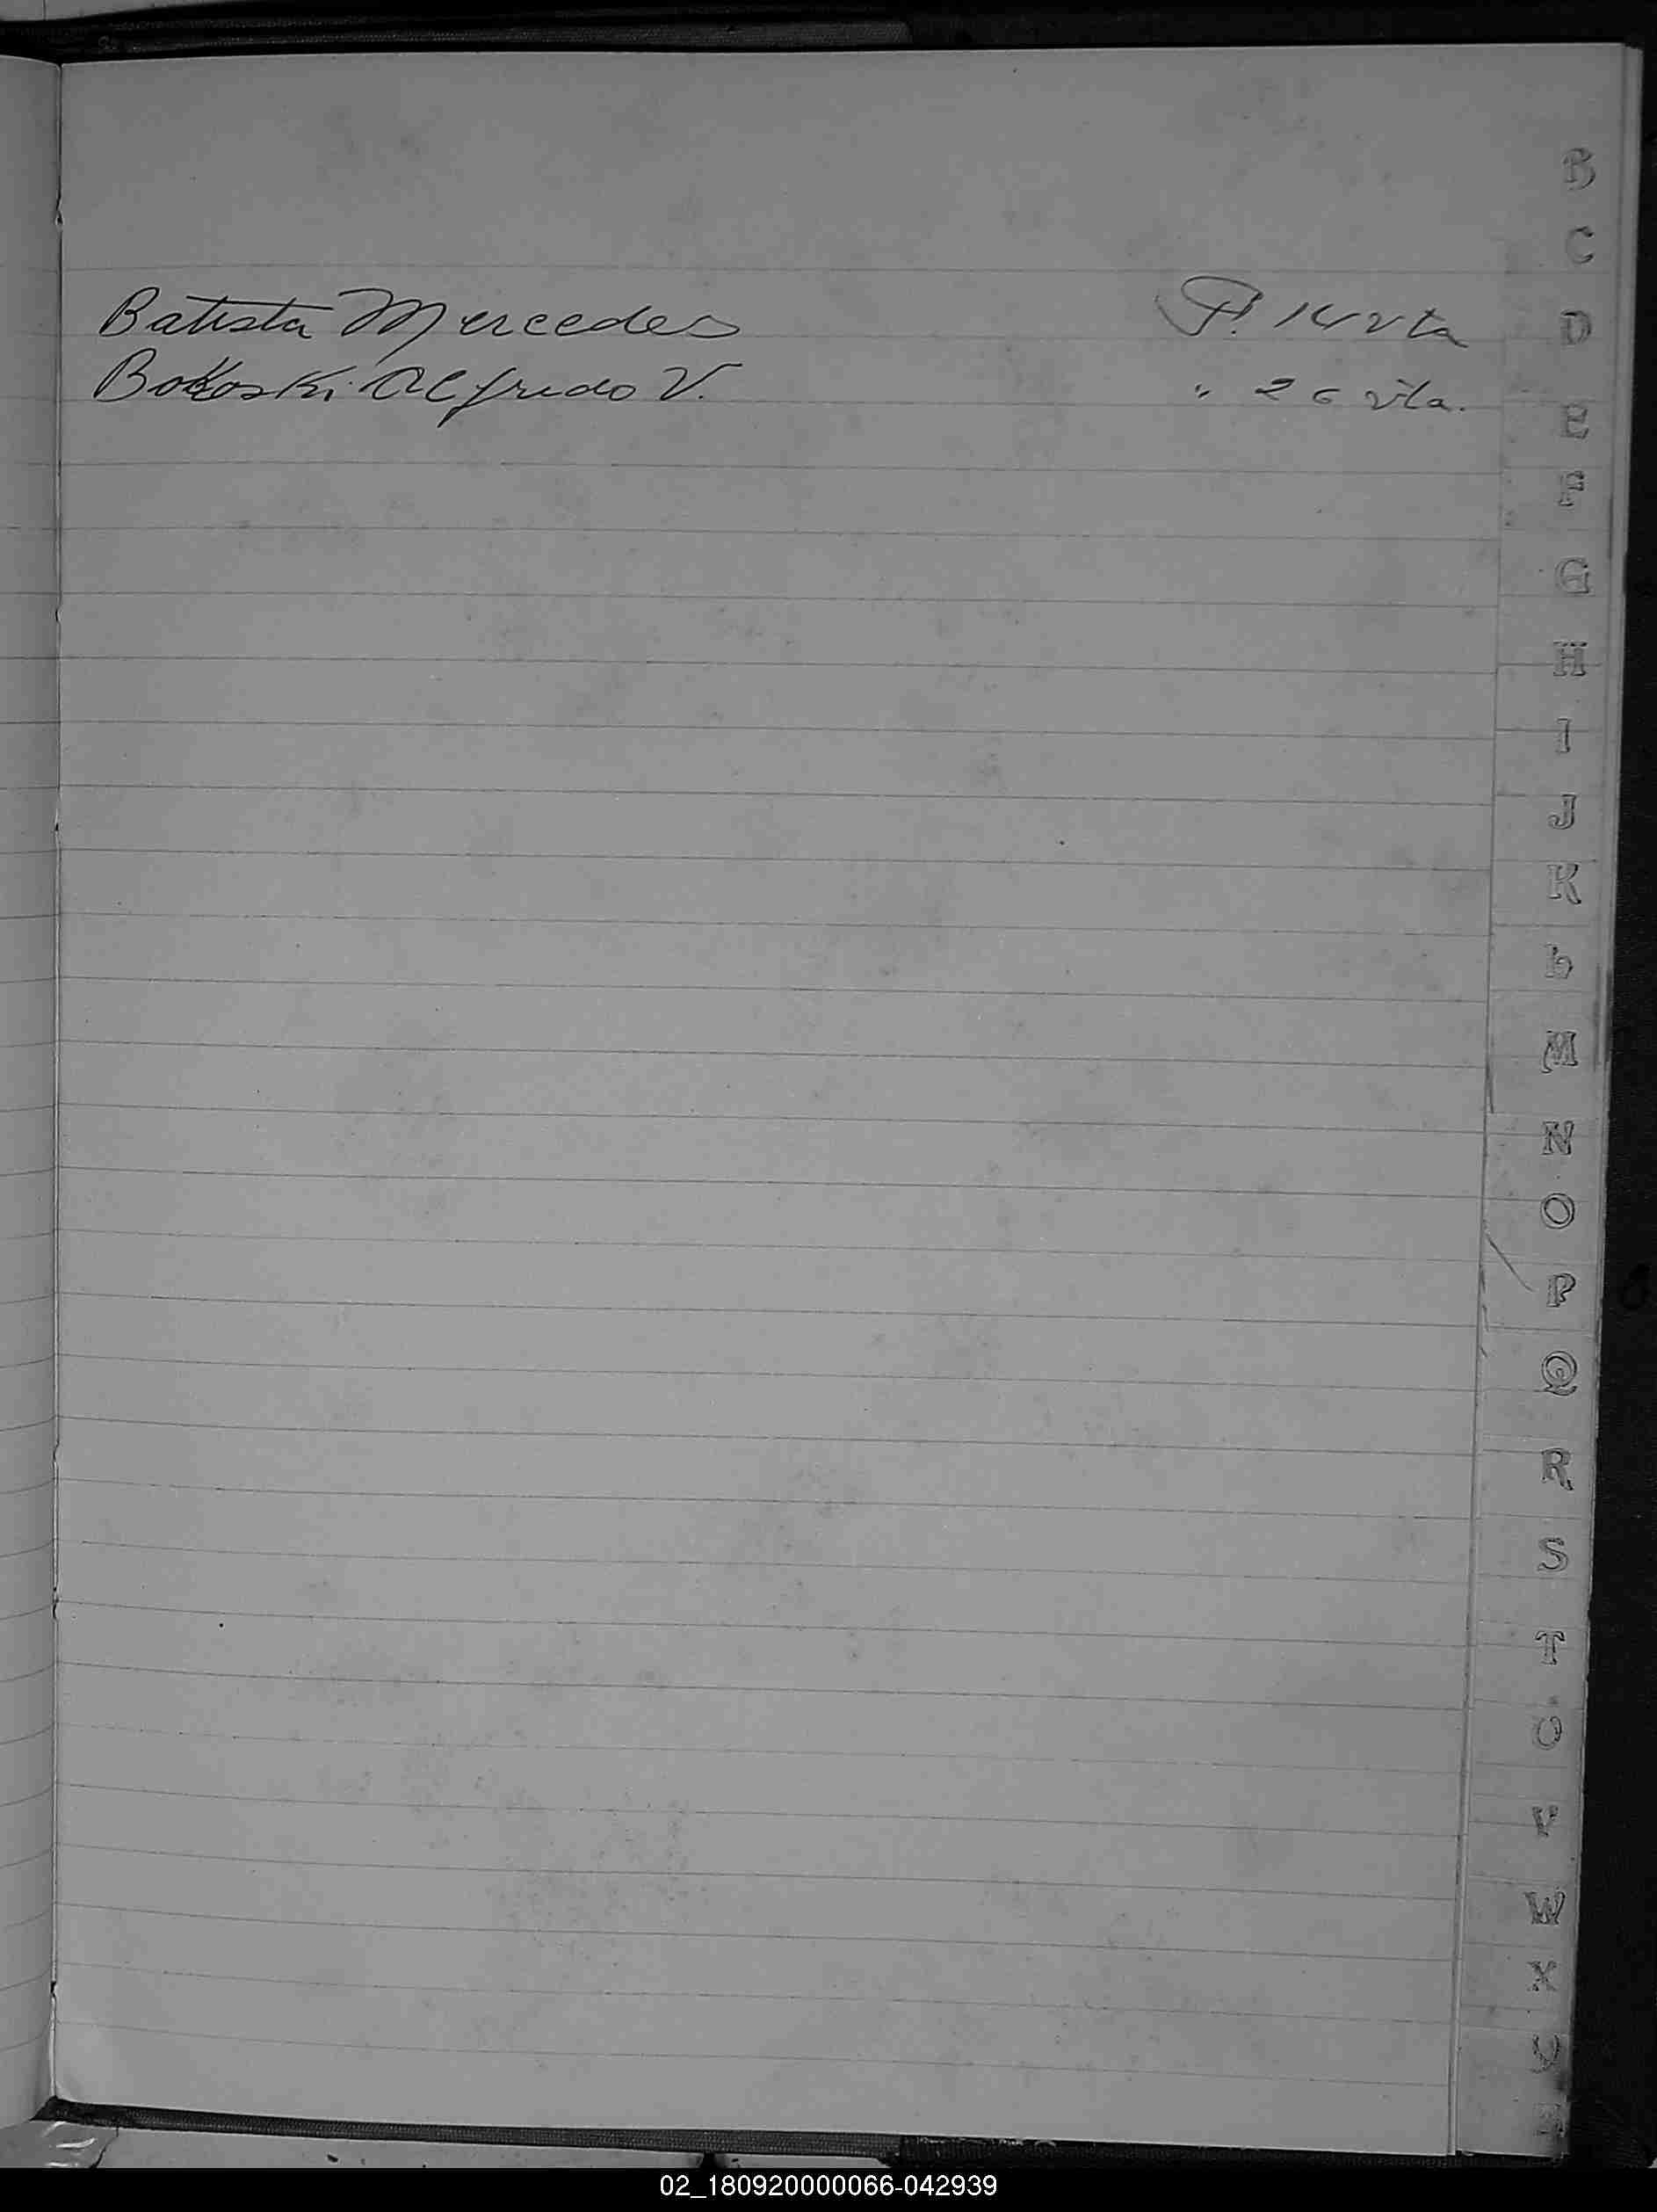 Batista Mercedes F. 14 vta
Bokoski Alfredo V. " 26 vta.
B
C
D
E
F
G
H
I
J
K
L
M
N
O
P
Q
R
S
T
U
V
W
X
Y
02_180920000066-042939